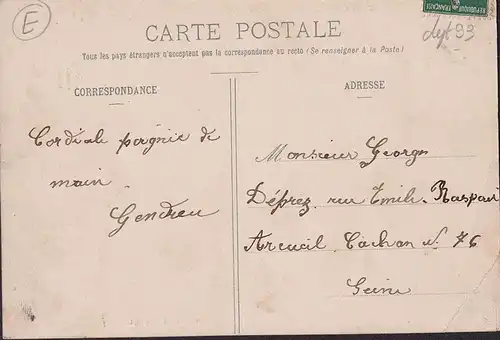 E
CARTE POSTALE
dept 93
Tous les pays étrangers n'acceptent pas la correspondance au recto (Se renseigner à la Poste)
CORRESPONDANCE
Cordiale pognie de
main.
Gendreu
ADRESSE
Monsieur Georges
Déprez rue Emile Raspail
Arcueil Cachan N. 76
Seine